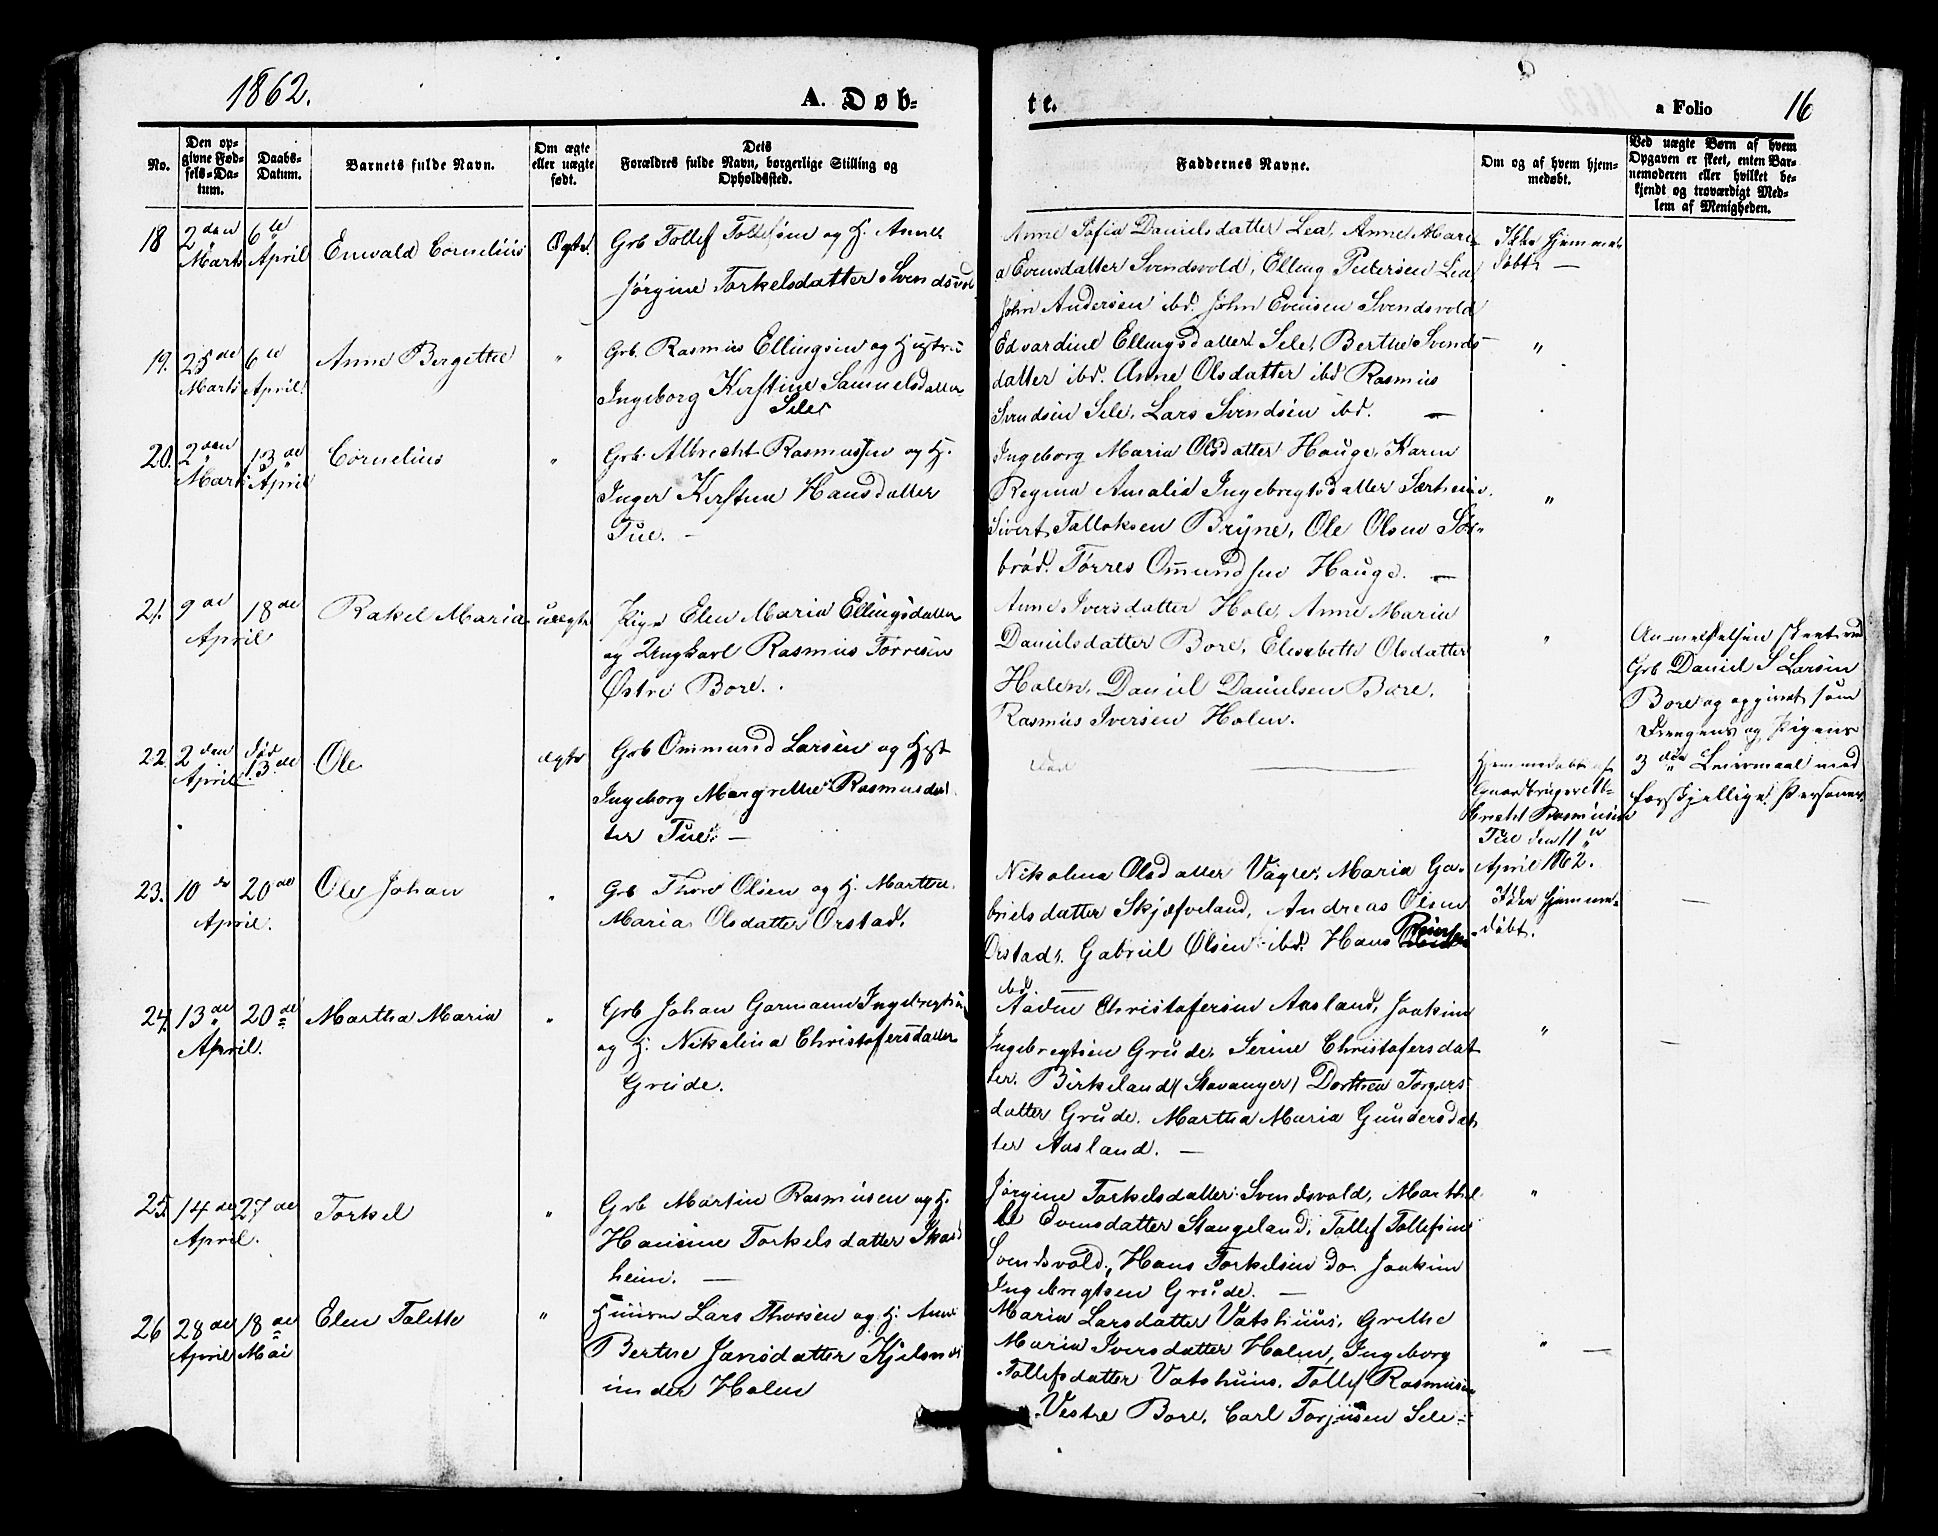 1862.
A. Døb-
te.
a Folio 16
No.
Den op-
givne Fød-
sels-Da-
tum.
Daabs-
Datum.
Barnets fulde Navn.
Om ægte
eller uægte
født.
Dets
Forældres fulde Navn, borgerlige Stilling og
Opholdssted.
Faddernes Navne.
Om og af hvem hjem-
medøbt.
Ved uægte Børn af hvem
Opgaven er skeet, enten Bar-
nemoderen eller hvilket be-
kjendt og troværdigt Med-
lem af Menigheden.
18
2den
Marts
6te
April
Enwald Cornelius
Ægte
Grb Tollef Tollefsen og H. Anne
Jørgine Torkelsdatter Svendsvol
Anne Sofia Danielsdatter Lea, Anne Mari-
a Evensdatter Svendsvold, Elling Pedersen Lea
John Andersen ibd. John Evensen Svendsvold
Ikke hjemme
døbt —
19.
25de
Marts
6te
April
Anne Bergette
"
Grb. Rasmus Ellingsen og Hustru
Ingeborg Kirstine Samuelsdatter
Sele
Edvardine Ellingsdatter Sele, Berthe Svends-
datter ibd. Anne Olsdatter ibd Rasmus
Svendsen Sele, Lars Svendsen ibd. —
"
20.
2den
Marts
13de
April
Cornelius
"
Grb. Albrecht Rasmussen og H.
Inger Kirstine Hansdatter
Tue. —
Ingeborg Maria Olsdatter Hauge, Karen
Regina Amalia Ingebregtsdatter Særheim.
Sivert Tolloksen Bryne, Ole Olsen Sør-
brød. Tørres Ommundsen Hauge. —
"
21.
9de
April
18de
Rakel Maria
uægte
Pige Elen Maria Ellingsdatter
og Ungkarl Rasmus Torresen
Østre Bore.
Anne Iversdatter Hole, Anne Maria
Danielsdatter Bore, Elisabeth Olsdatter
Holen, Daniel Danielsen Bore,
Rasmus Iversen Holen.
"
Anmeldelsen skeet ved
Grb Daniel S Larsen
Bore og opgivet som
Drengens og Pigens
3die Leiermaal med
forskjellige Personer
22
2den
April
død
13de
Ole
ægte
Grb Ommund Larsen og Hust
Ingeborg Margrethe Rasmusdat
ter Tue. —
død
Hjemmedøbt af
Gaardbruger Al-
brecht Rasmussen
Tue den 11te
April 1862.
23.
10de
April.
20de
Ole Johan
"
Grb Thore Olsen og H. Marthe
Maria Olsdatter Orstad.
Nikolina Olsdatter Vagle, Maria Ga-
brielsdatter Skjæfveland, Andreas Olsen
Orstad, Gabriel Olsen ibd. Hans
ibd —
Ikke hjemme-
døbt.
—
24.
13de
April.
20de
Martha Maria
"
Grb Johan Garmann Ingebregtsen
og H. Nikolina Christofersdatter
Grude.
Aaden Christofersen Aasland, Joakim
Ingebregtsen Grude, Serine Christofersdat
ter. Birkeland (Stavanger) Dorthea Torgers
datter Grude. Martha Maria Gundersdat
ter Aasland. —
"
—
25.
14de
April.
27de
Torkel
"
Grb Martin Rasmusen og H.
Hansine Torkelsdatter Skad
heim. —
Jørgine Torkelsdatter Svendsvold, Marthe
Evensdatter Stangeland, Tollef Tollefsen
Svendsvold, Hans Torkelsen do. Joakim
Ingebregtsen Grude. —
"
26
28de
April
18de
Mai
Elen Talette
"
Lars Thorsen og H. Anne
Berthe Jansdatter
under Holen
Maria Larsdatter Vatshuus, Grethe
Maria Iversdatter Holen, Ingeborg
Tollefsdatter Vatshuus. Tollef Rasmusen
Vestre Bore, Carl Torjusen Sele-
" —